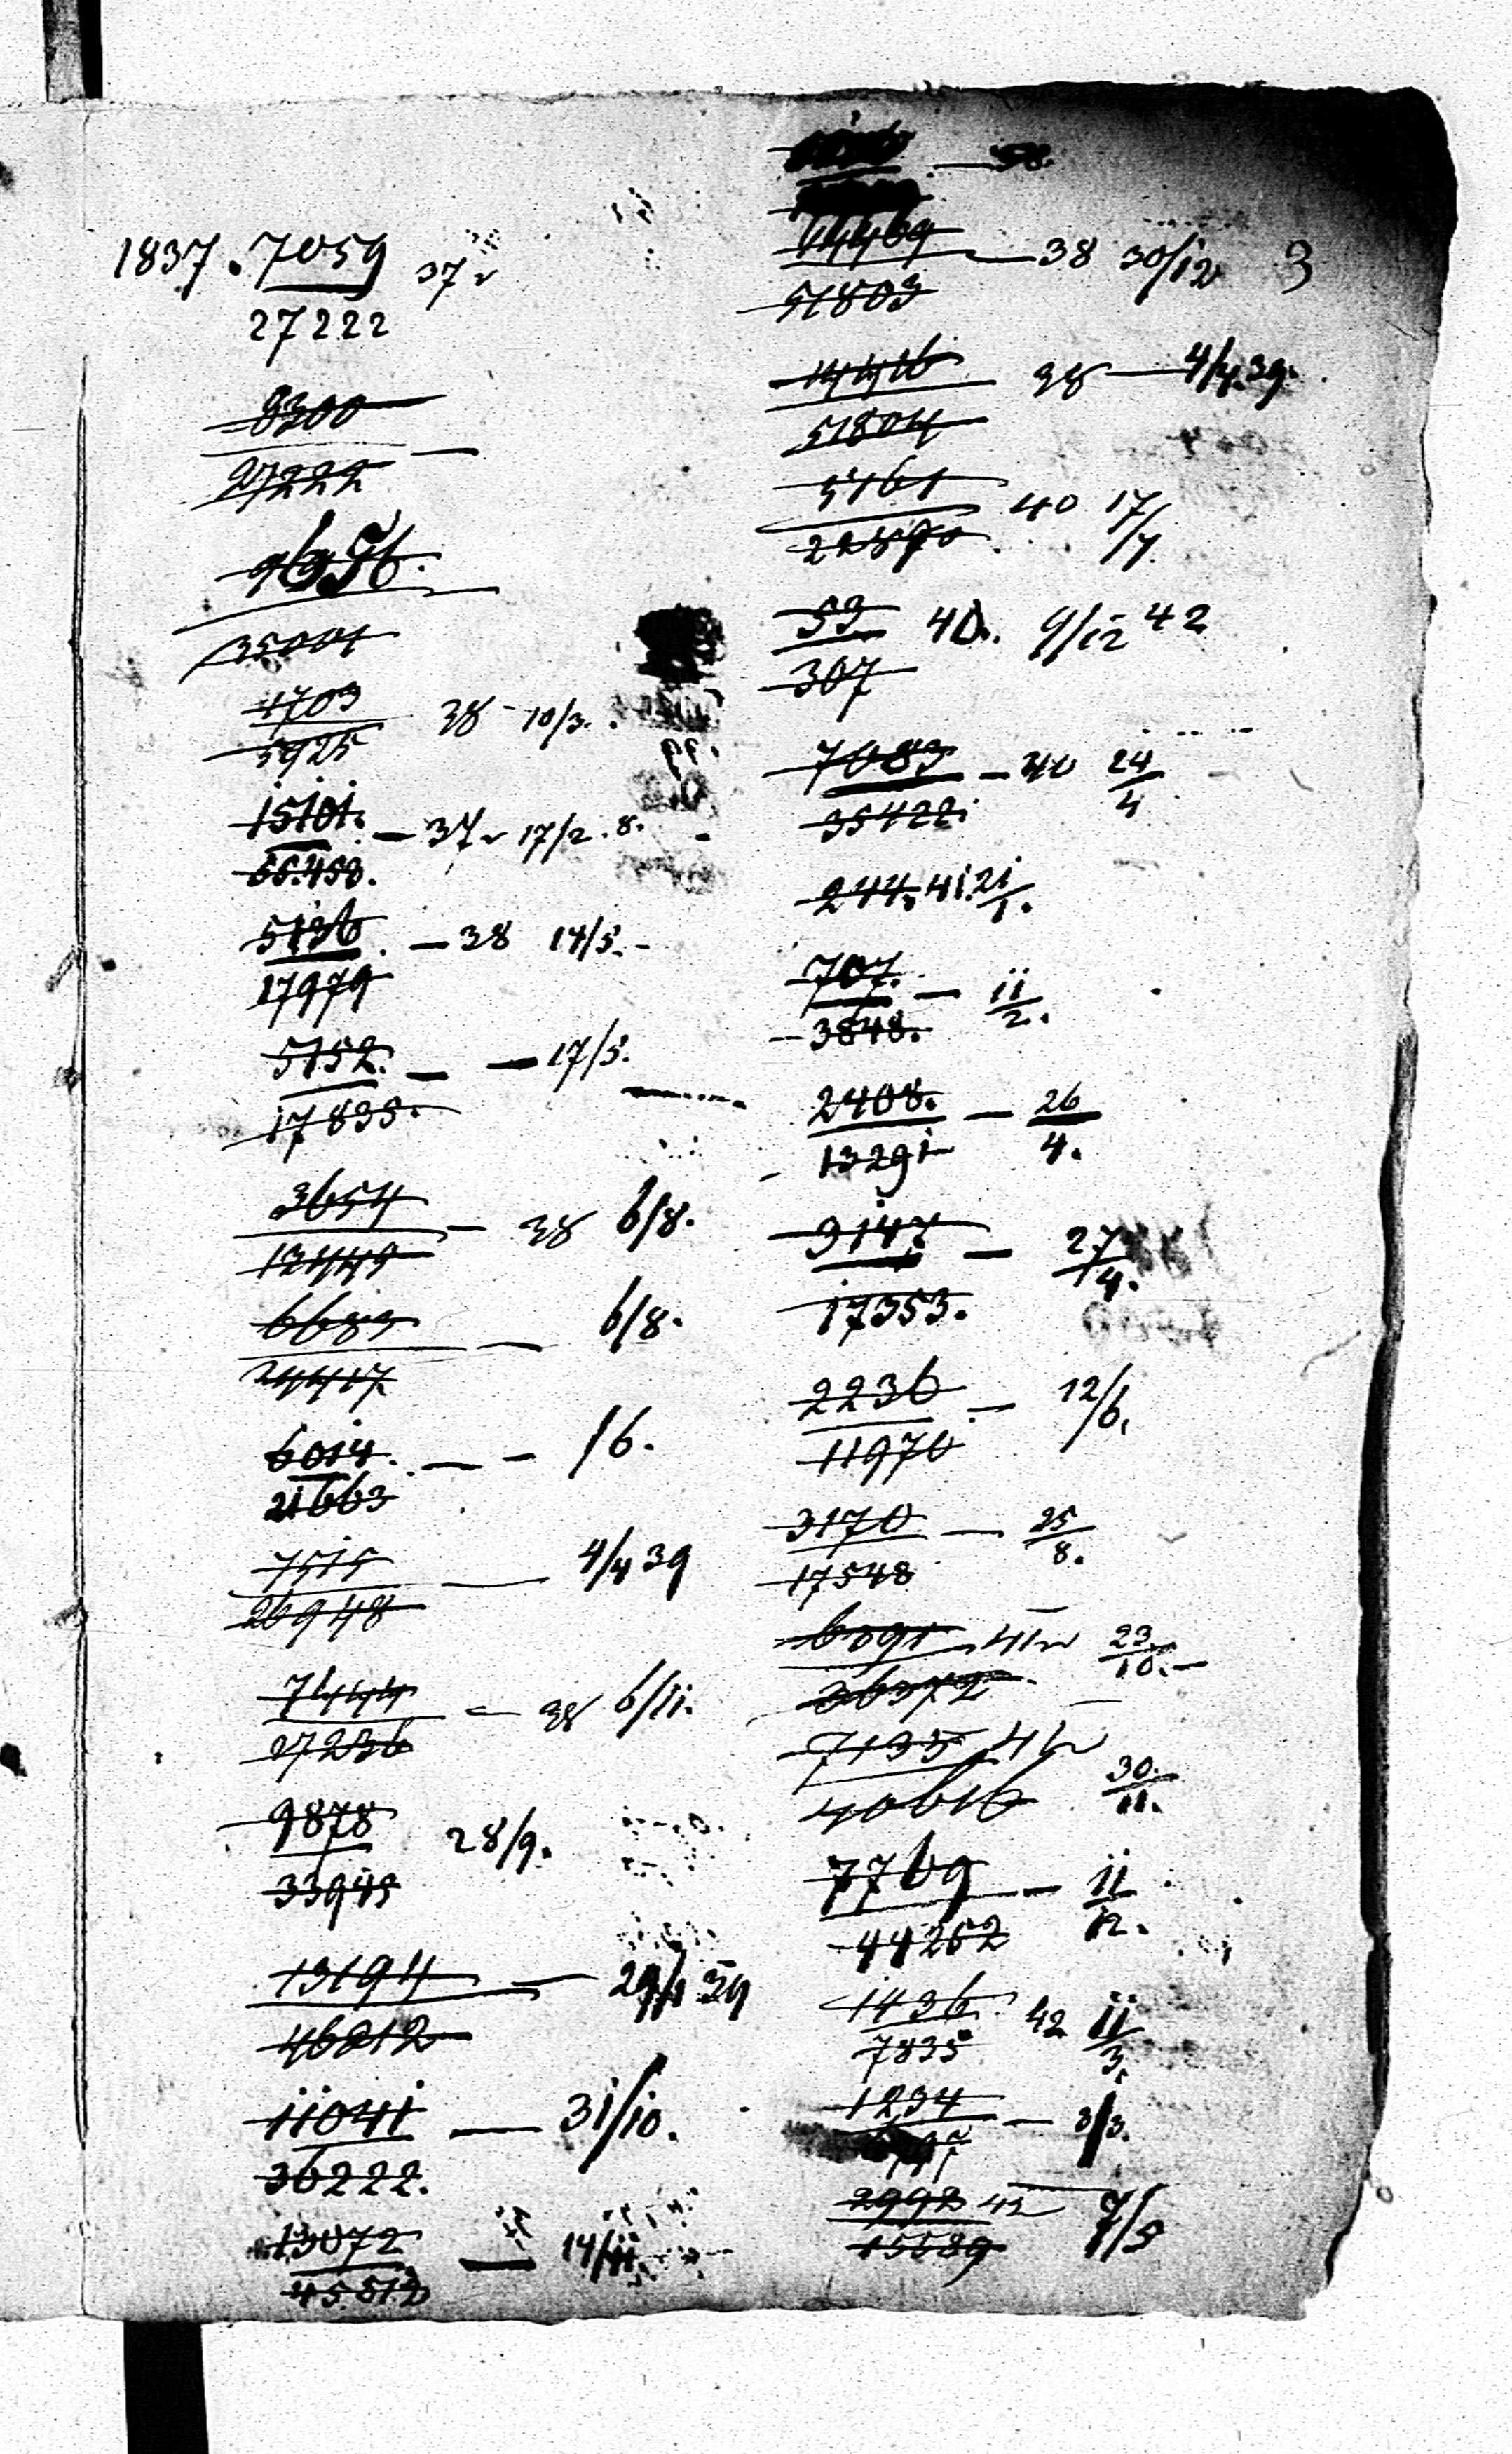 1837. 7059 37
27222
8300
27222
9656.
35001
1703 38 - 10/3.
5925
15101. - 37 17/2.8.
55.450.
5136. - 38 14/5.-
17979
5152. - - 17/5.
17835.
3654 - 38 6/8.
12449
6683 - 6/8.
24417
6014. - - /6.
21663
7515 - 4/4 39
26948
7444 - 38 6/11.
27236
9878 28/9.
33949
13194 - 29/4 39
46212
11041 - 31/10.
36222.
13072 - 14/11.
45.512
14469 - 38 30/12 3
51803
14416 38 - 4/4.39.
51804
5161 40 17/7.
22890
53 40. 9/12 42
307
7083 - 40 24/4
35422
244. 41. 21/1.
707. - 11/2.
3848.
2408. - 26/4.
13291
3147 - 27/4.
17353.
2236 - 12/6.
11970
3170 - 25/8.
17548
6391 41 23/10.-
36372
7135 41 30/11.
40616
7769 - 11/12.
44252
1436 42 11/3.
7835
1234 - 3/3.
2992 42 7/5
15589